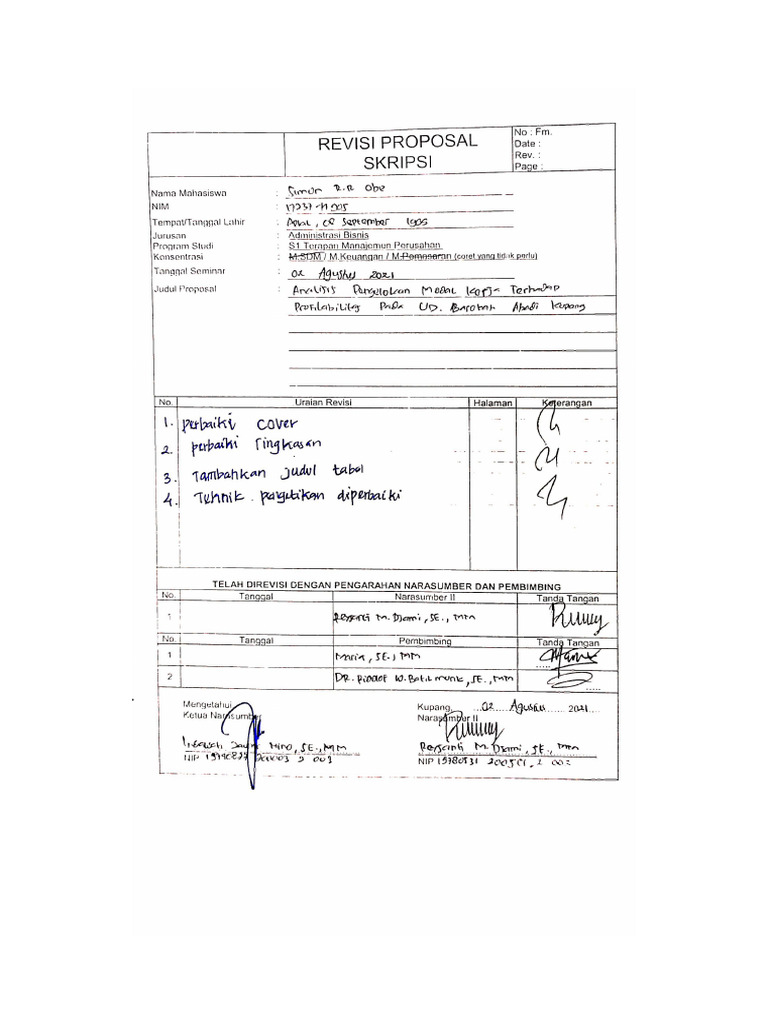 REVISI PROPOSAL
SKRIPSI
No : Fm.
Date :
Rev. :
Page :
Nama Mahasiswa : Simon R.R Obe
NIM :
Tempat/Tanggal Lahir : September 1995
Jurusan : Administrasi Bisnis
Program Studi : S1 Terapan Manajemen Perusahan
Konsentrasi : M.SDM / M.Keuangan / M.Pemasaran (coret yang tidak perlu)
Tanggal Seminar : 02 Agustus 2021
Judul Proposal : Analisis Pengelolaan Modal Kerja Terhadap
Profitabilitas Pada UD. Abadi Kupang
No. Uraian Revisi Halaman Keterangan
1. perbaiki cover
2. perbaiki ringkasan
3. Tambahkan judul tabel
4. Tehnik pengutikan diperbaiki
TELAH DIREVISI DENGAN PENGARAHAN NARASUMBER DAN PEMBIMBING
No. Tanggal Narasumber II Tanda Tangan
1 M. Djami, SE., MM
No. Tanggal Pembimbing Tanda Tangan
1 Maria, SE., MM
2 DR. W. SE, MM
Mengetahui
Ketua Narasumber
Kupang, 02 Agustus 2021
Narasumber II
SE., MM
M. Djami, SE., MM
NIP
NIP